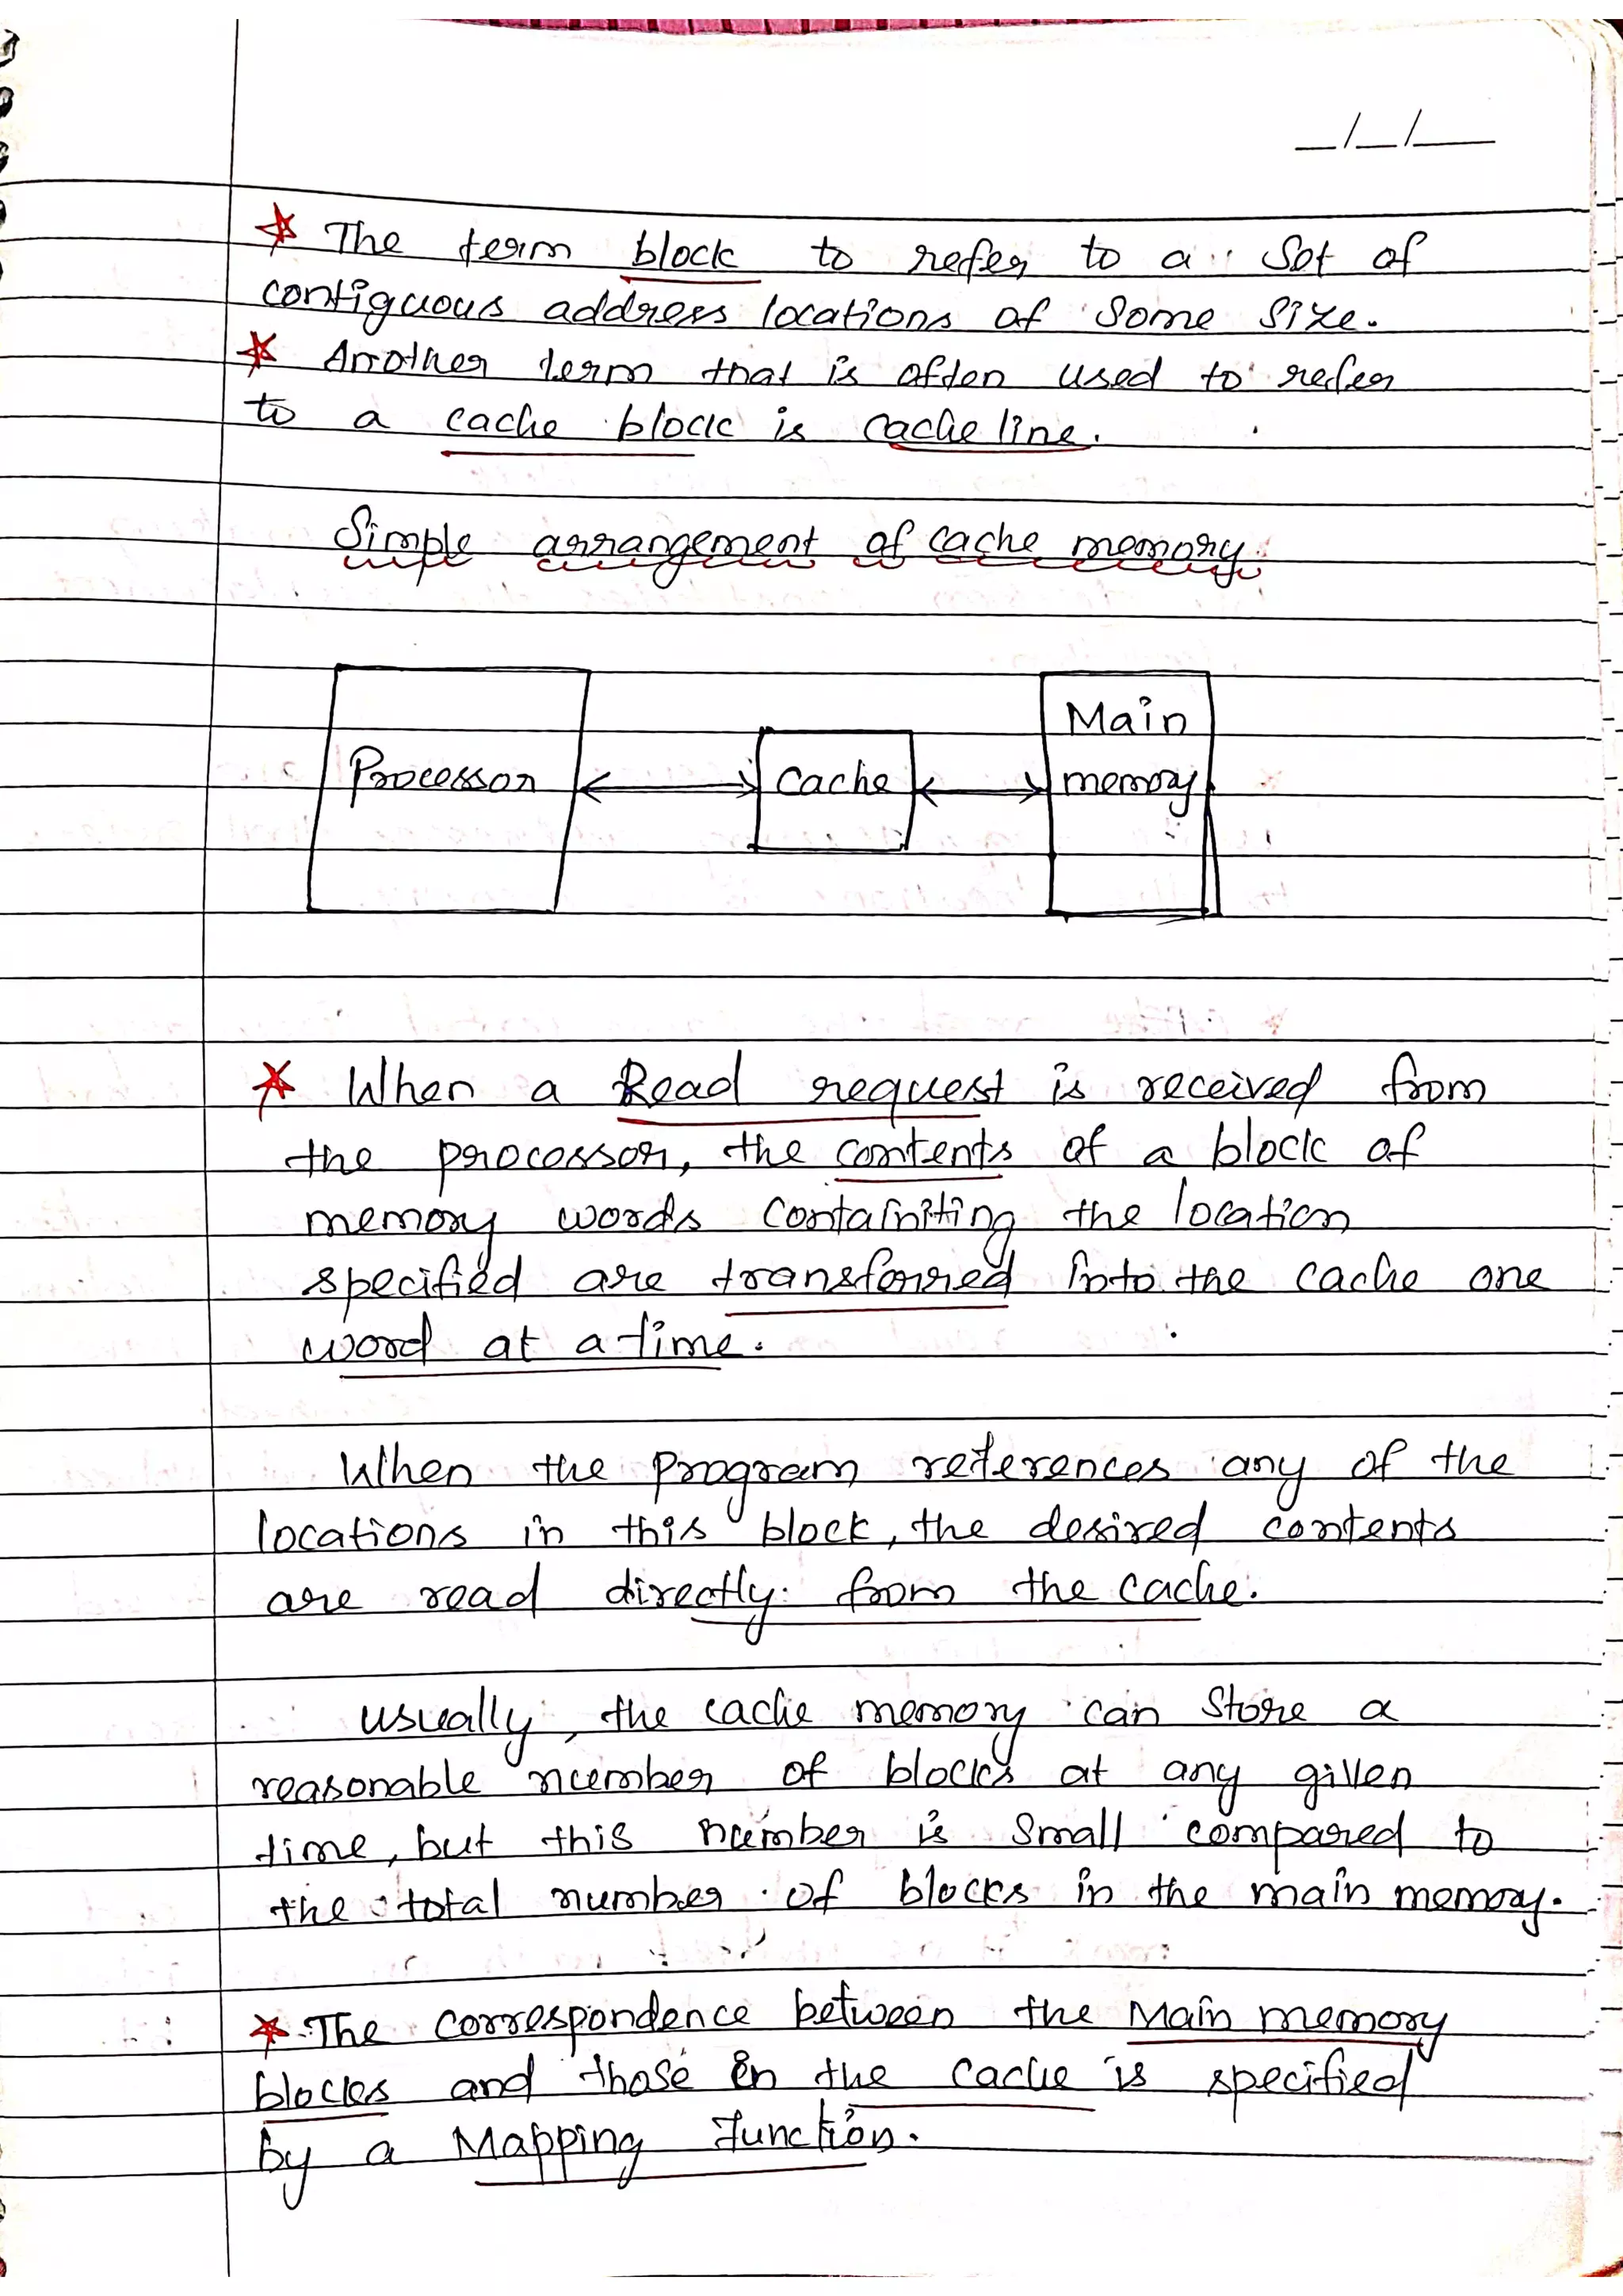 _/_/__
* The term block to refer to a set of
contiguous address locations of some size.
* Another term that is often used to refer
to a cache block is cache line.
Simple arrangement of cache memory.
Processor
Cache
Main
memory
* When a Read request is received from
the processor, the contents of a block of
memory words containiting the location
specified are transferred into the cache one
word at a time.
When the program references any of the
locations in this block, the desired contents
are read directly from the cache.
usually, the cache memory can store a
reasonable number of blocks at any given
time, but this number is small compared to
the total number of blocks in the main memory.
* The correspondence between the Main memory
blocks and those in the cache is specified
by a Mapping function.